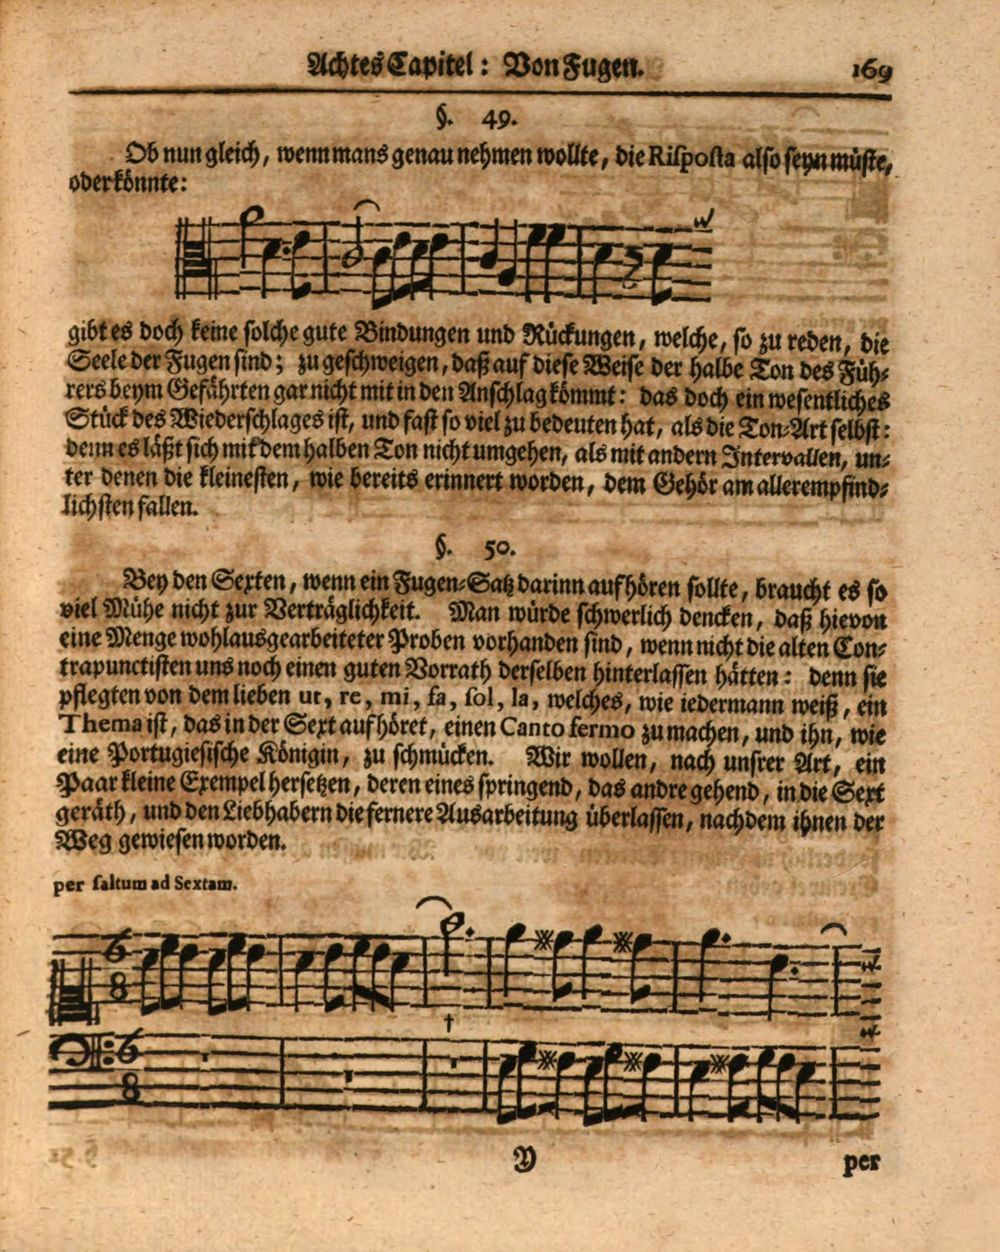 Achtes Capitel: Von Fugen. 169
§. 49.
Ob nun gleich, wenn mans genau nehmen wollte, die Risposta also seyn müste,
oder könnte:
gibt es doch keine solche gute Bindungen und Rückungen, welche, so zu reden, die
Seele der Fugen sind; zu geschweigen, daß auf diese Weise der halbe Ton des Füh-
rers beym Gefährten gar nicht mit in den Anschlag kömmt: das doch ein wesentliches
Stück des Wiederschlages ist, und fast so viel zu bedeuten hat, als die Ton-Art selbst:
denn es läßt sich mit dem halben Ton nicht umgehen, als mit andern Intervallen, un-
ter denen die kleinesten, wie bereits erinnert worden, dem Gehör am allerempfind-
lichsten fallen.
§. 50.
Bey den Sexten, wenn ein Fugen-Satz darinn aufhören sollte, braucht es so
viel Mühe nicht zur Verträglichkeit. Man würde schwerlich dencken, daß hievon
eine Menge wohlausgearbeiteter Proben vorhanden sind, wenn nicht die alten Con-
trapunctisten uns noch einen guten Vorrath derselben hinterlassen hätten: denn sie
pflegten von dem lieben ut, re, mi, fa, sol, la, welches, wie iedermann weiß, ein
Thema ist, das in der Sext aufhöret, einen Canto fermo zu machen, und ihn, wie
eine Portugiesische Königin, zu schmücken. Wir wollen, nach unsrer Art, ein
Paar kleine Exempel hersetzen, deren eines springend, das andre gehend, in die Sext
geräth, und den Liebhabern die fernere Ausarbeitung überlassen, nachdem ihnen der
Weg gewiesen worden.
per saltum ad Sextam.
6
8
†
6
8
Y per